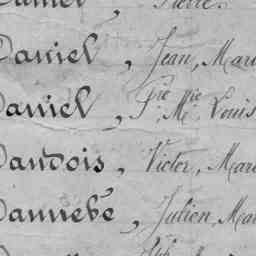 Daniel, Pierre.
Daniel, Jean, Mari
Daniel, Pre Mie Louis
Dandois, Victor, Mari
Dannebé, Julien, Mar